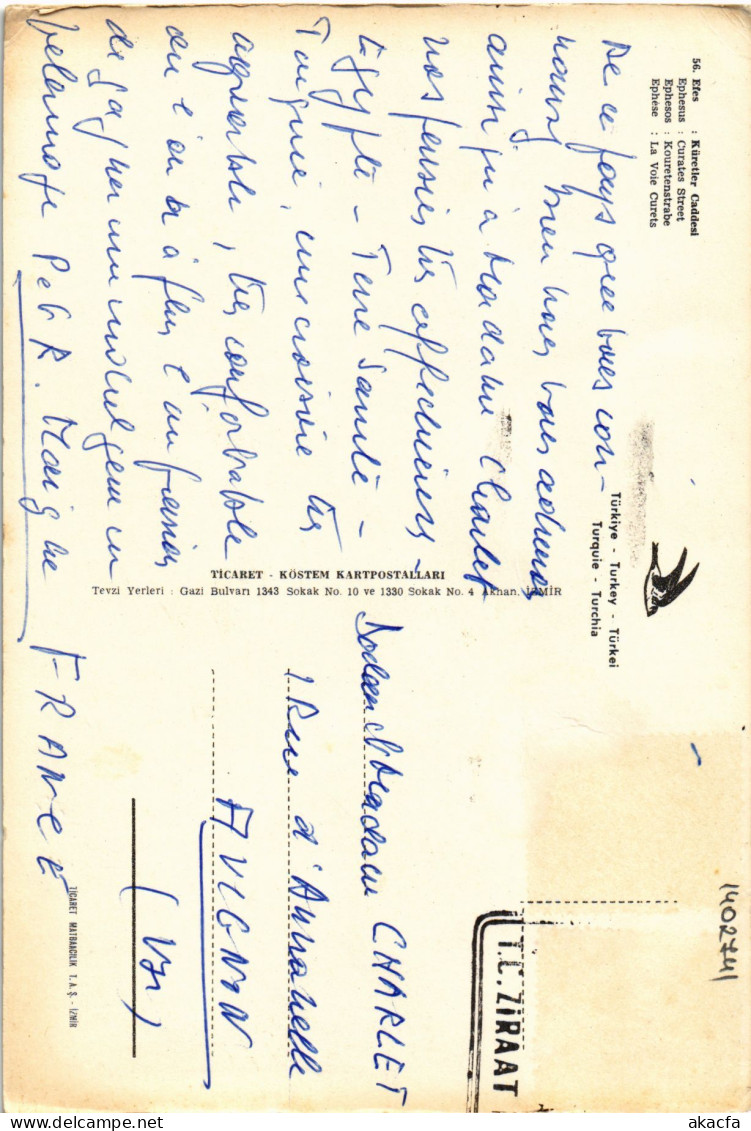 56. Efes : Küretler Caddesi
Ephesus : Curates Street
Ephesos : Kouretenstrabe
Ephése : La Voie Curets
Türkiye - Turkey - Türkei
Turquie - Turchia
De ce pays que vous con-
naissez bien nous vous adressons
ainsi qu'à Madame Charlet
nos pensées très affectueuses -
Egypte - Terre Sainte -
Turquie, une croisière très
agréable, très confortable
où l'on a plus l'impression
de gagner une indulgence
TİCARET - KÖSTEM KARTPOSTALLARI
Tevzi Yerleri : Gazi Bulvarı 1343 Sokak No. 10 ve 1330 Sokak No. 4 Akhan. İZMİR
1402741
T.C. ZİRAAT
CHARLET
1 Rue d'Annanelle
AVIGNON
FRANCE
TİCARET MATBAACILIK T.A.Ş. - İZMİR
akpool.co.uk
akacfa